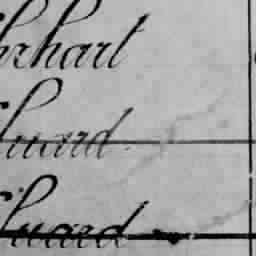 hrhart
luard
luard